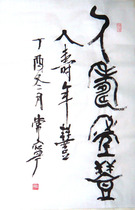 人壽年豐
人寿年豐
丁酉冬月